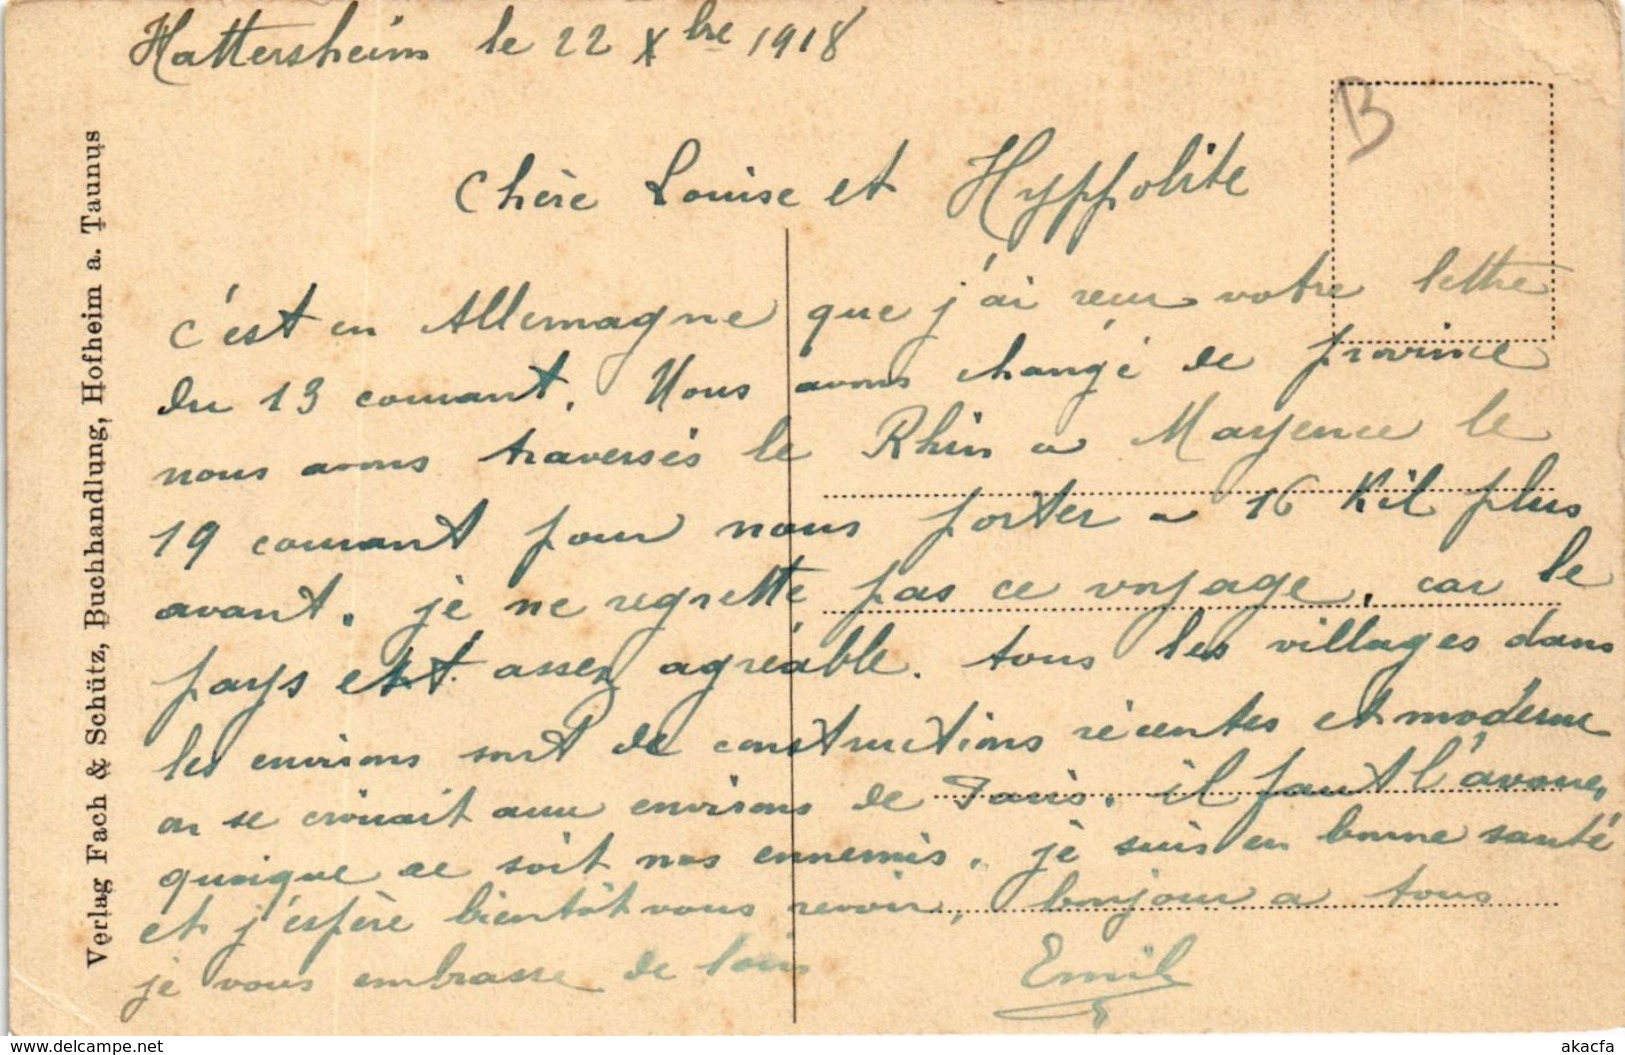 Hattersheim le 22 Xbre 1918
B
Chère Louise et Hyppolite
c'est en Allemagne que j'ai reçu votre lettre
du 13 courant. Nous avons changé de province
nous avons traversés le Rhin a Mayence le
19 courant pour nous porter a 16 Kil plus
avant. je ne regrette pas ce voyage. car le
pays est assez agréable. tous les villages dans
les environs sont de constructions récentes et moderne
on se croirait aux environs de Paris. il faut l'avouer,
quoique ce soit nos ennemis. je suis en bonne santé
et j'espère bientôt vous revoir, bonjour a tous
je vous embrasse de loin
Emile
Verlag Fach & Schütz, Buchhandlung, Hofheim a. Taunus
www.delcampe.net
akacfa